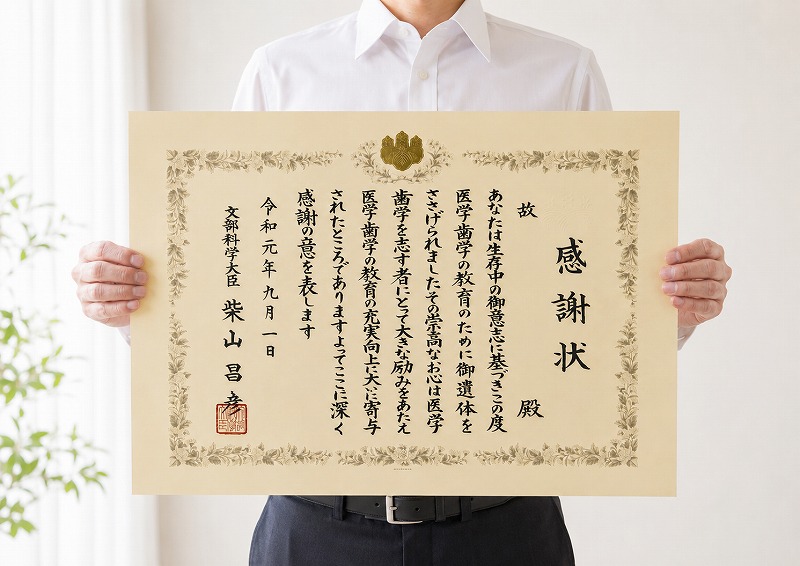 感謝状
故 殿
あなたは生存中の御意志に基づきこの度
医学歯学の教育のために御遺体を
ささげられましたその崇高なお心は医学
歯学を志す者にとって大きな励みをあたえ
医学歯学の教育の充実向上に大いに寄与
されたところでありますよってここに深く
感謝の意を表します
令和元年九月一日
文部科学大臣 柴山昌彦